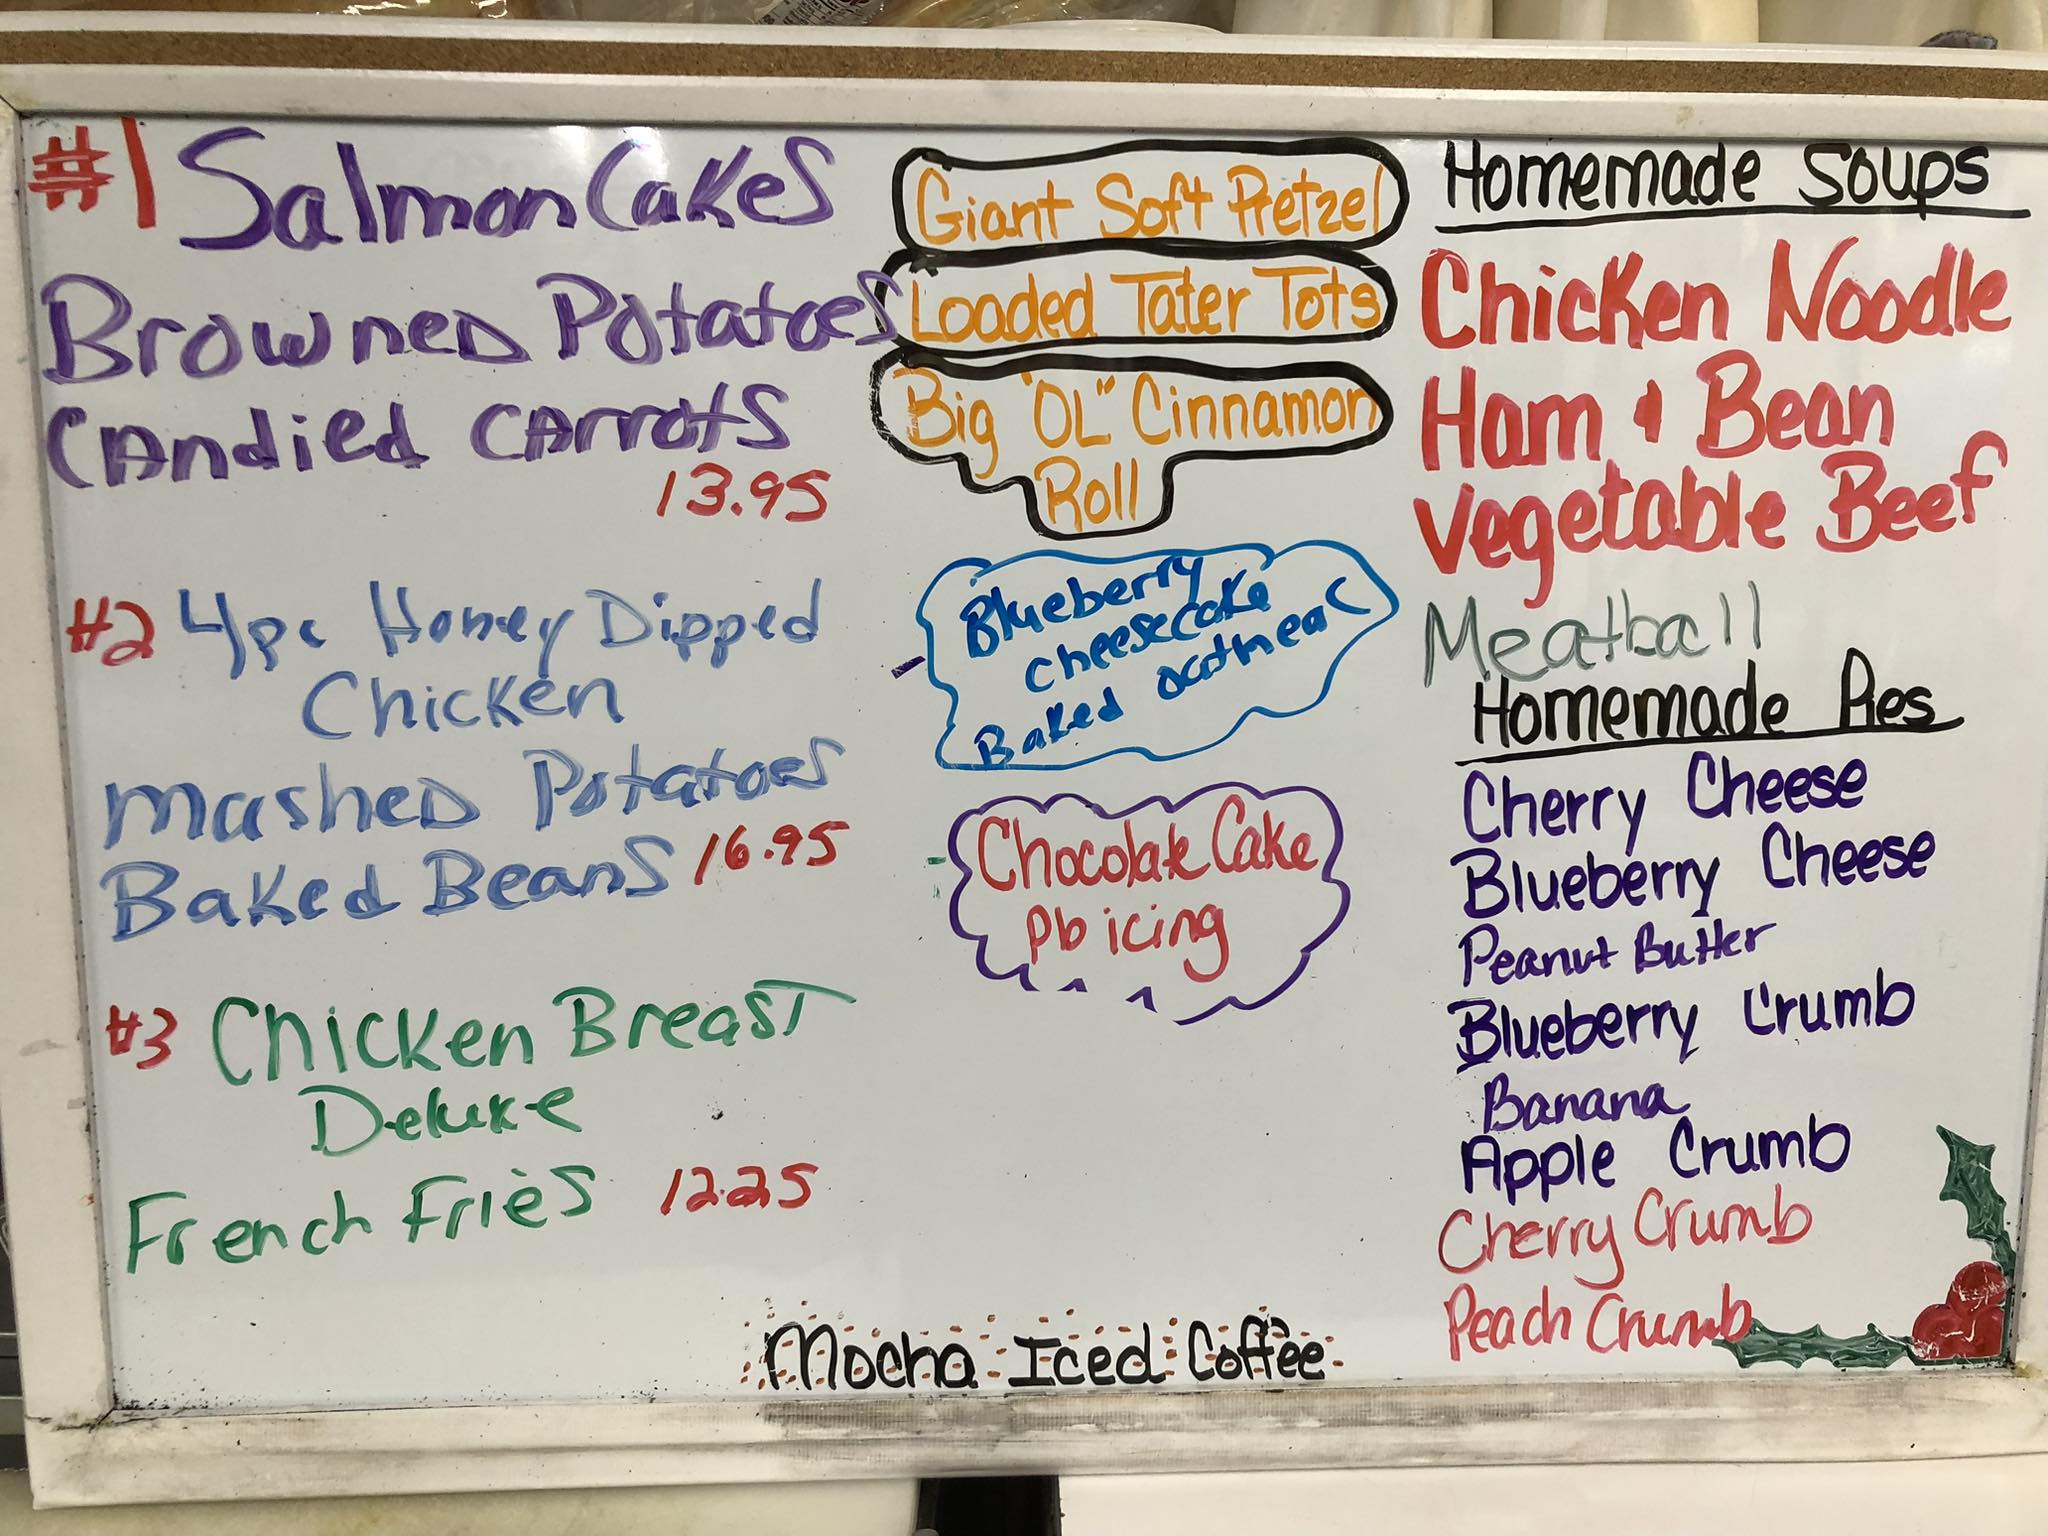 #1 Salmon Cakes
Browned Potatoes
Candied Carrots
13.95
#2 4pc Honey Dipped
Chicken
Mashed Potatoes
Baked Beans 16.95
#3 Chicken Breast
Deluxe
French Fries 12.25
Giant Soft Pretzel
Loaded Tater Tots
Big "OL" Cinnamon
Roll
Blueberry
Cheesecake
Baked Oatmeal
Chocolate Cake
Pb icing
Mocha Iced Coffee
Homemade Soups
Chicken Noodle
Ham & Bean
Vegetable Beef
Meatball
Homemade Pies
Cherry Cheese
Blueberry Cheese
Peanut Butter
Blueberry Crumb
Banana
Apple Crumb
Cherry Crumb
Peach Crumb